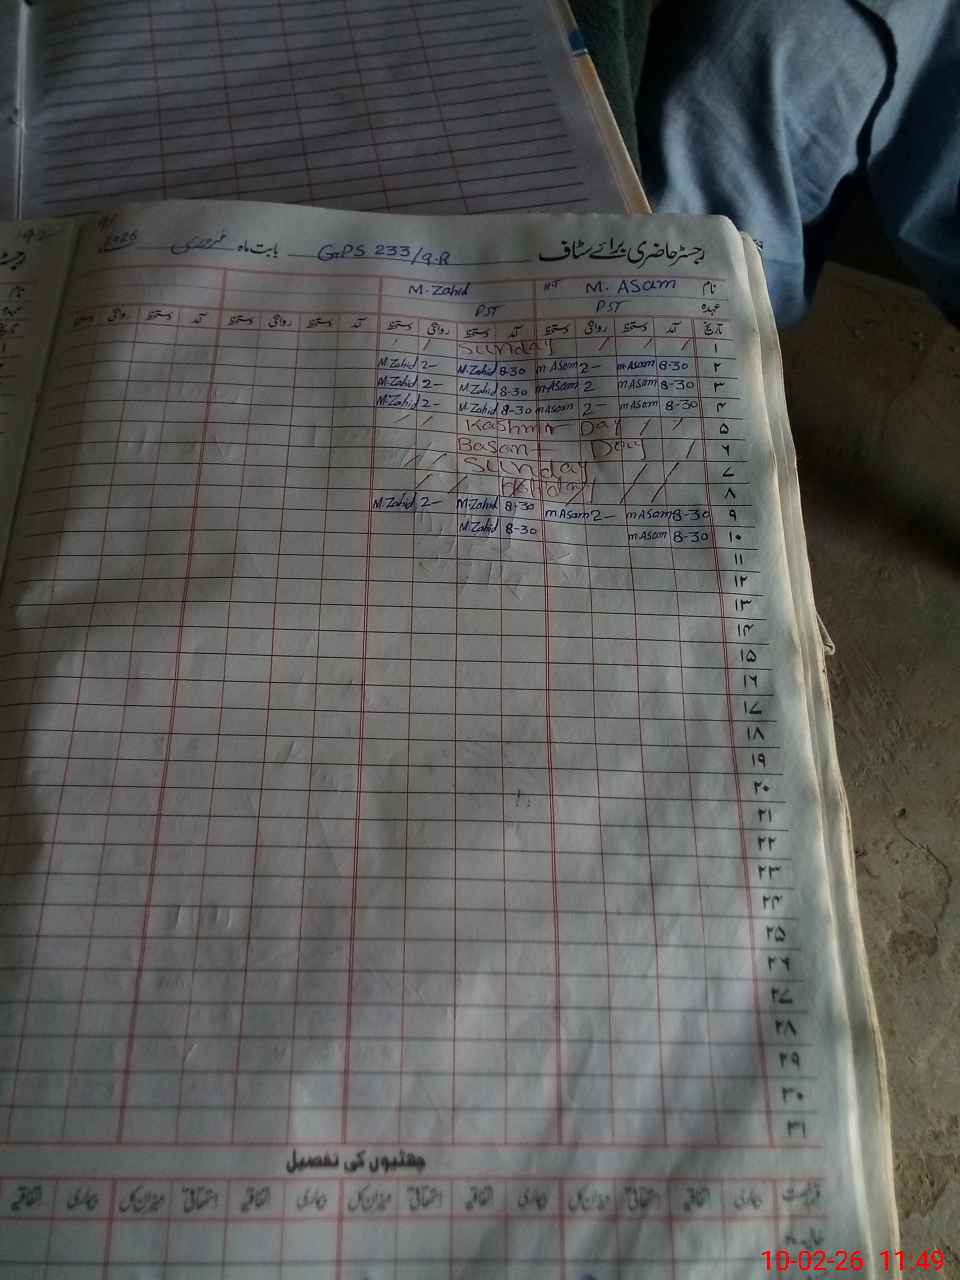 رجسٹر حاضری برائے سٹاف GPS 233/9.R بابت ماہ فروری 2026
نام M. ASam M. Zahid
عہدہ PST PST
تاریخ آمد دستخط روانگی دستخط آمد دستخط روانگی دستخط آمد دستخط روانگی دستخط آمد دستخط روانگی دستخط
۱ / / / / Sunday / /
۲ 8-30 mASam 2- mASam 8-30 M.Zahid 2- M.Zahid
۳ 8-30 mASam 2 mASam 8-30 M.Zahid 2- M.Zahid
۴ 8-30 mASam 2- mASam 8-30 M.Zahid 2- M.Zahid
۵ / / Kashmir Day / /
۶ / / Basant Day / /
۷ / / Sunday / /
۸ / / / / / /
۹ 8-30 mASam 2- mASam 8-30 M.Zahid 2- M.Zahid
۱۰ 8-30 mASam 8-30 M.Zahid
۱۱
۱۲
۱۳
۱۴
۱۵
۱۶
۱۷
۱۸
۱۹
۲۰
۲۱
۲۲
۲۳
۲۴
۲۵
۲۶
۲۷
۲۸
۲۹
۳۰
۳۱
چھٹیوں کی تفصیل
بیماری اتفاقیہ استحقاقی میزان کل بیماری اتفاقیہ استحقاقی میزان کل بیماری اتفاقیہ استحقاقی میزان کل بیماری اتفاقیہ
10-02-26 11:49